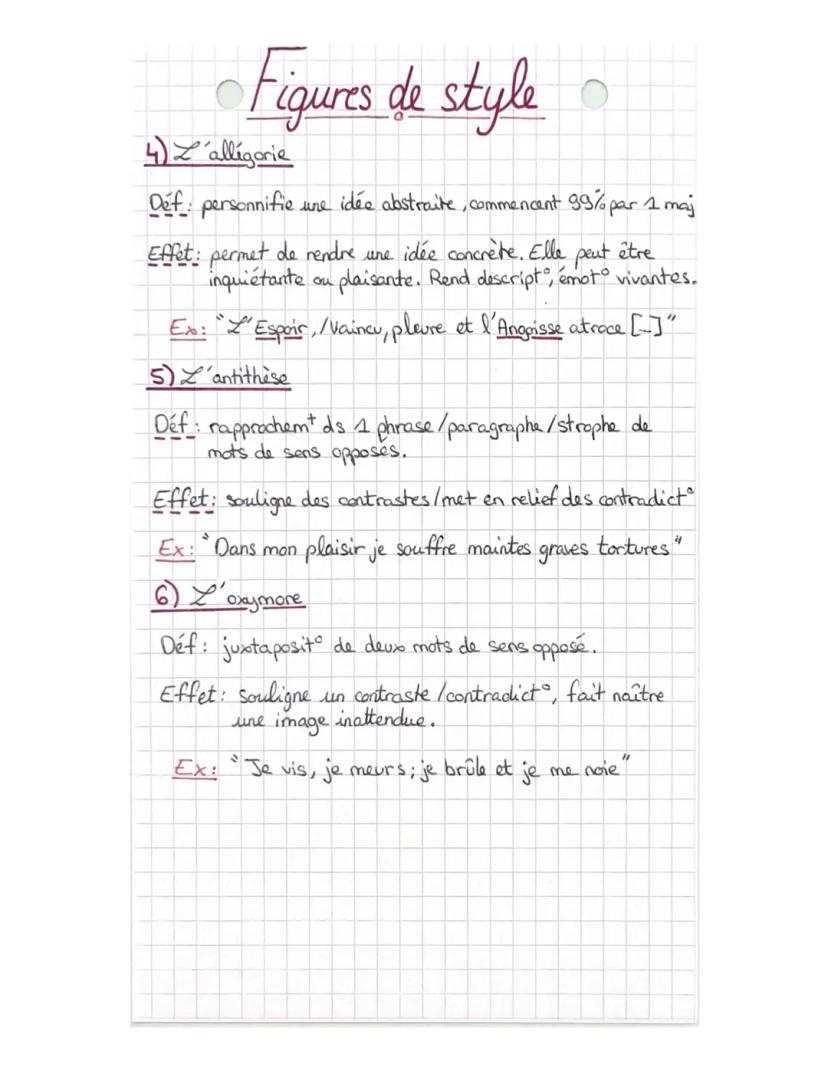 Figures de style
4) L'allégorie
Déf : personnifie une idée abstraite, commencent 99% par 1 maj
Effet : permet de rendre une idée concrète. Elle peut être
inquiétante ou plaisante. Rend descript°, émot° vivantes.
Ex : "L'Espoir, / Vaincu, pleure et l'Angoisse atroce [...]"
5) L'antithèse
Déf : rapprochem^t ds 1 phrase/paragraphe/strophe de
mots de sens opposés.
Effet : souligne des contrastes/met en relief des contradict°
Ex : "Dans mon plaisir je souffre maintes graves tortures"
6) L'oxymore
Déf : juxtaposit° de deux mots de sens opposé.
Effet : souligne un contraste/contradict°, fait naître
une image inattendue.
Ex : "Je vis, je meurs ; je brûle et je me noie"